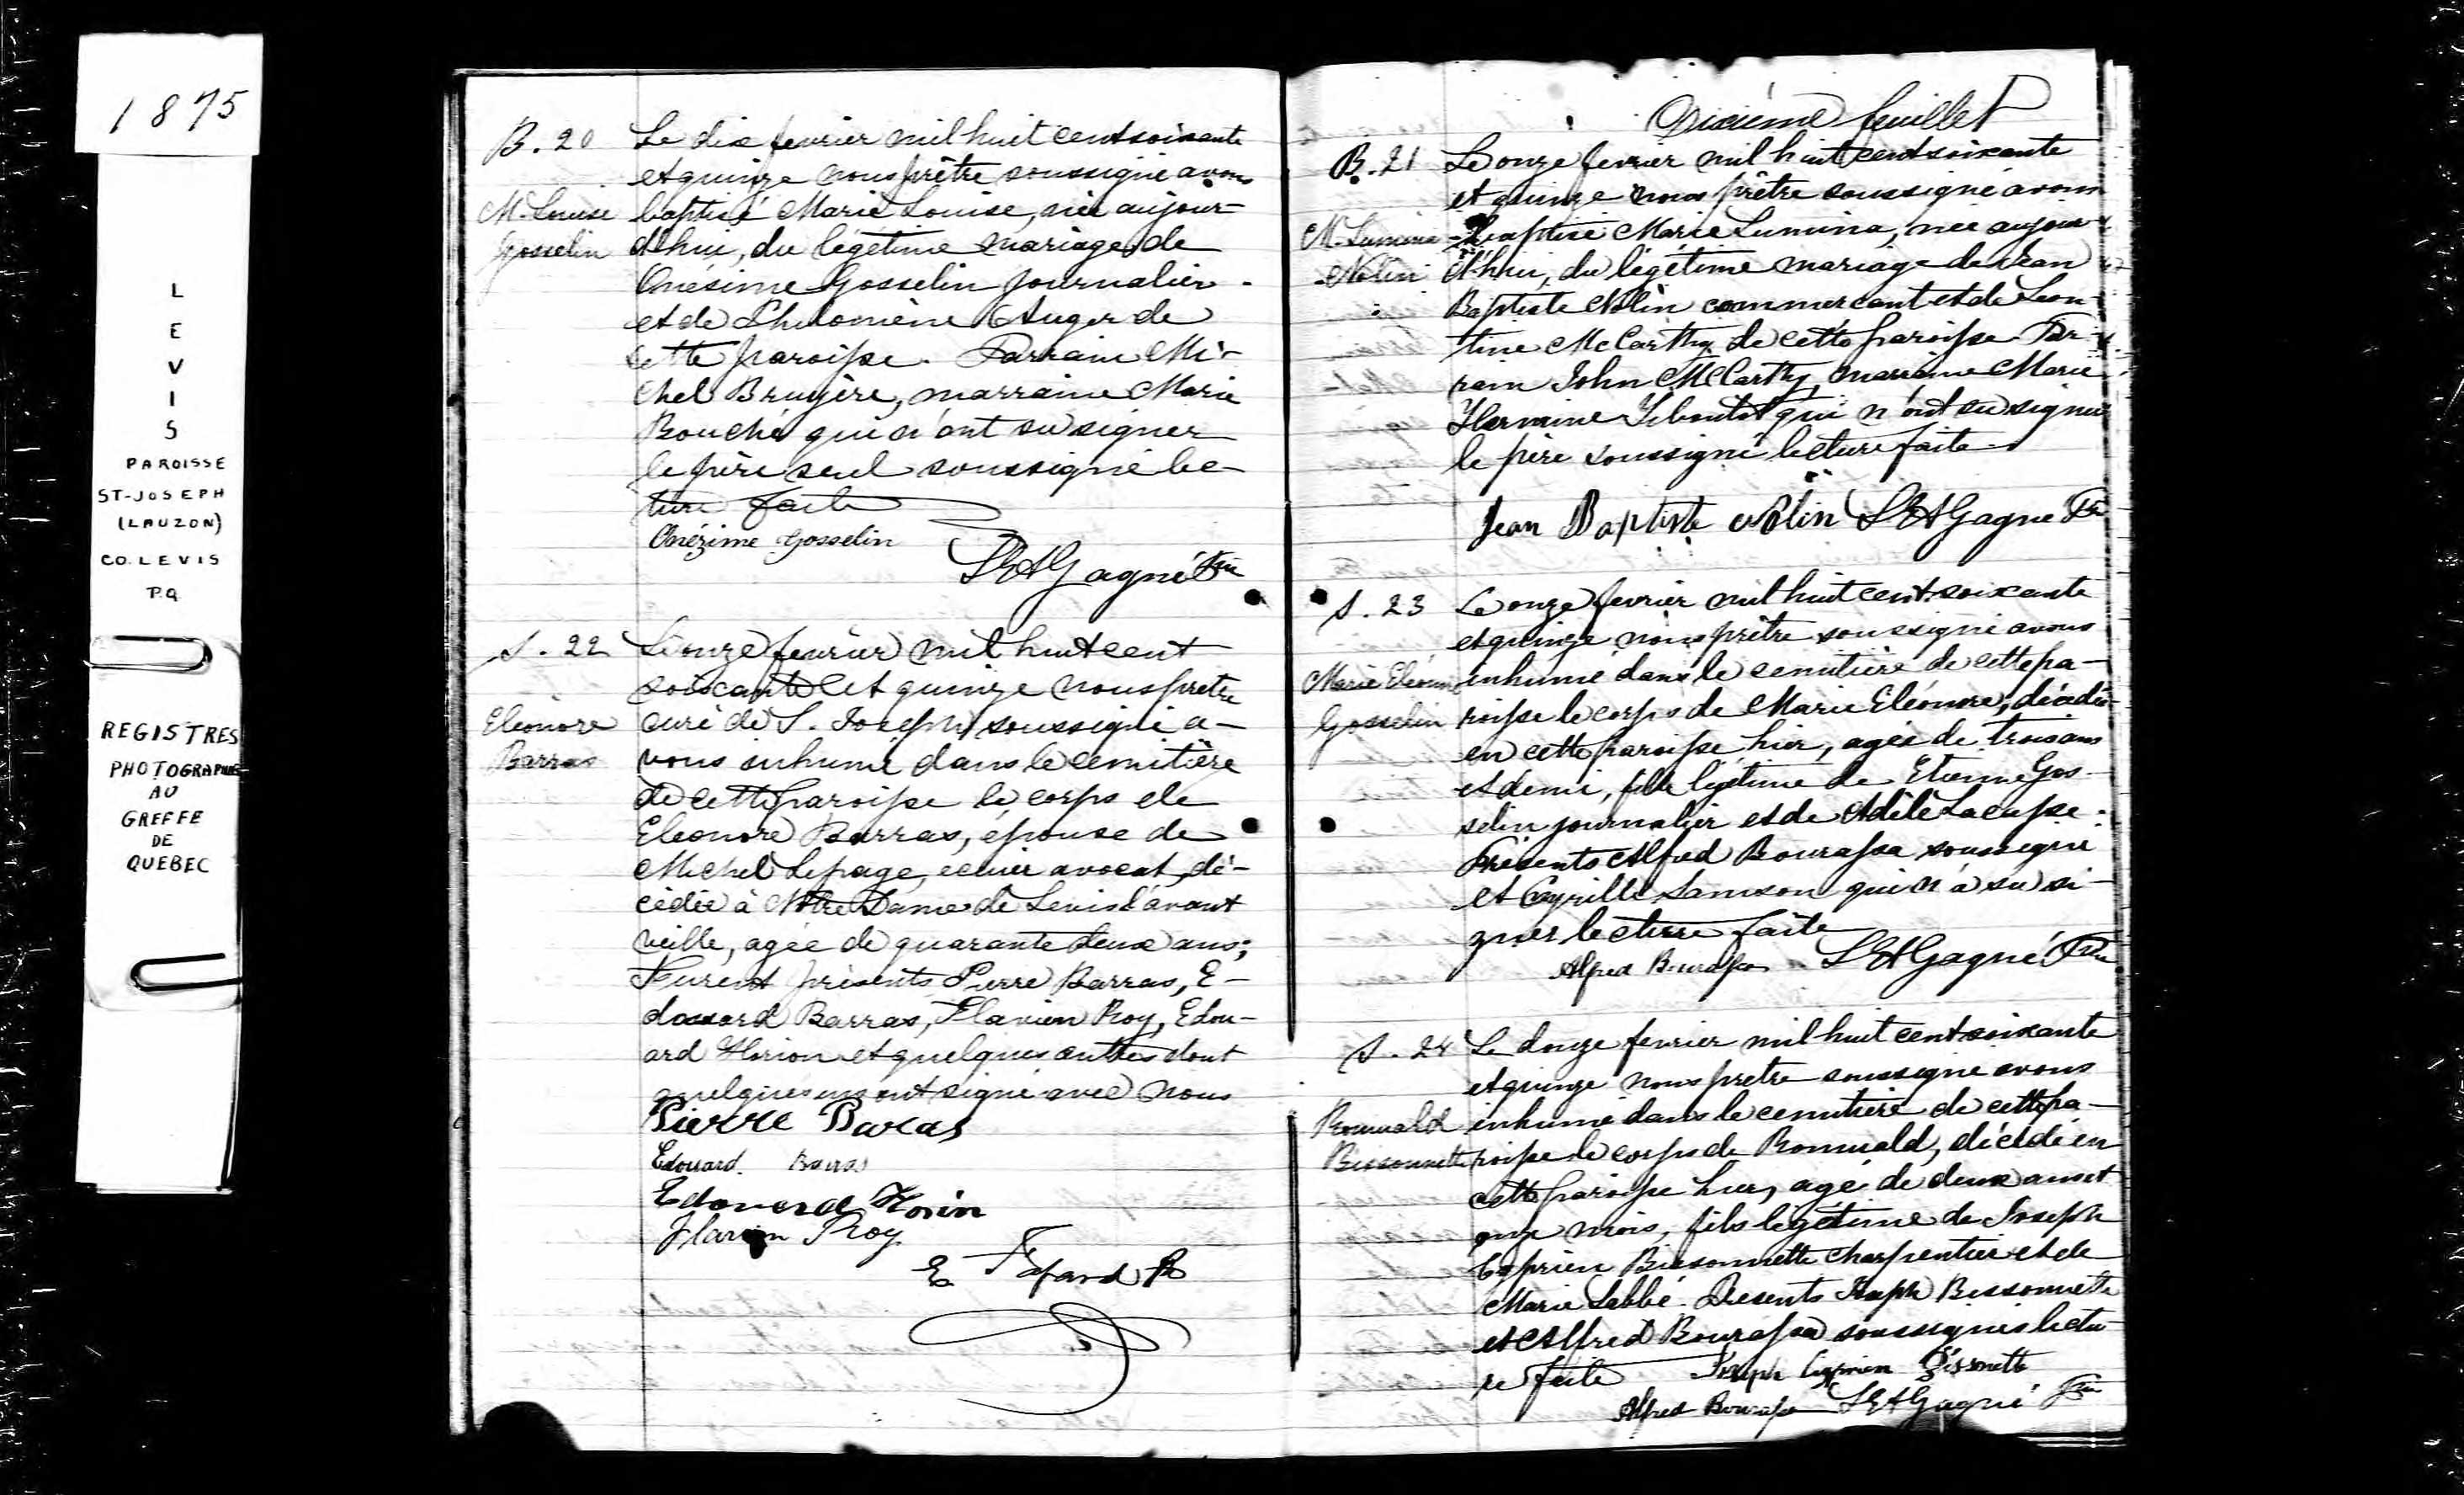 1875
L
E
V
I
S
PAROISSE
ST-JOSEPH
(LAUZON)
CO. LEVIS
P.Q
REGISTRES
PHOTOGRAPHIÉS
AU
GREFFE
DE
QUEBEC
B. 20
M. Louise
Gosselin
Le dix fevrier mil huit cent soixante
et quinze nous prêtre soussigné avons
baptisé Marie Louise, née aujour-
d'hui, du légitime mariage de
Onésime Gosselin journalier
et de Philomène Auger de
cette paroisse. Parrain Mi-
chel Bruyère, marraine Marie
Bouché qui n'ont su signer
le père seul soussigné lec-
ture faite
Onézime Gosselin
LEAGagné Ptre
S. 22
Eléonore
Barras
Le onze fevrier mil huit cent
soixante et quinze nous prêtre
curé de S. Joseph soussigné a-
vons inhumé dans le cemitière
de cette paroisse le corps de
Eleonore Barras, épouse de
Michel Lepage, ecuier avocat, dé-
cédée à Notre Dame de Levis l'avant
veille, agée de quarante deux ans;
Furent présents Pierre Barras, E-
douard Barras, Flavien Roy, Edou-
ard Horion et quelques autres dont
quelques uns ont signé avec nous
Pierre Baras
Edouard Barras
Edouard Horin
Flavien Roy
E Fafard Ptre
Onzième feuillet
B. 21
M. Lumina
Nolin
Le onze fevrier mil huit cent soixante
et quinze nous prêtre soussigné avons
baptisé Marie Lumina, née aujour
d'hui, du légitime mariage de Jean
Baptiste Nolin commercant et de Leon-
tine McCarthy de cette paroisse Par-
rain John McCarthy, marraine Marie
Hermine qui n'ont su signer
le père soussigné lecture faite
Jean Baptiste Nolin LEAGagné Ptre
S. 23
Marie Eléonore
Gosselin
Le onze fevrier mil huit cent soixante
et quinze nous prêtre soussigné avons
inhumé dans le cemitière de cette pa-
roisse le corps de Marie Eléonore, décédée
en cette paroisse hier, agée de trois ans
et demi, fille légitime de Etienne Gos-
selin journalier et de Adèle Lacasse.
Présents Alfred Bourassa soussigné
et Cyrille Samson qui n'a su si-
gner lecture faite
Alfred Bourassa LEAGagné Ptre
S. 24
Romuald
Bissonnette
Le douze fevrier mil huit cent soixante
et quinze nous prêtre soussigné avons
inhumé dans le cemitière de cette pa-
roisse le corps de Romuald, décédé en
cette paroisse hier, agé de deux ans et
onze mois, fils légitime de Joseph
Cyprien Bissonnette charpentier et de
Marie Labbé. Présents Joseph Bissonnette
et Alfred Bourassa soussignés lectu
re faite Joseph Cyprien Bissonette
Alfred Bourassa LEAGagné Ptre